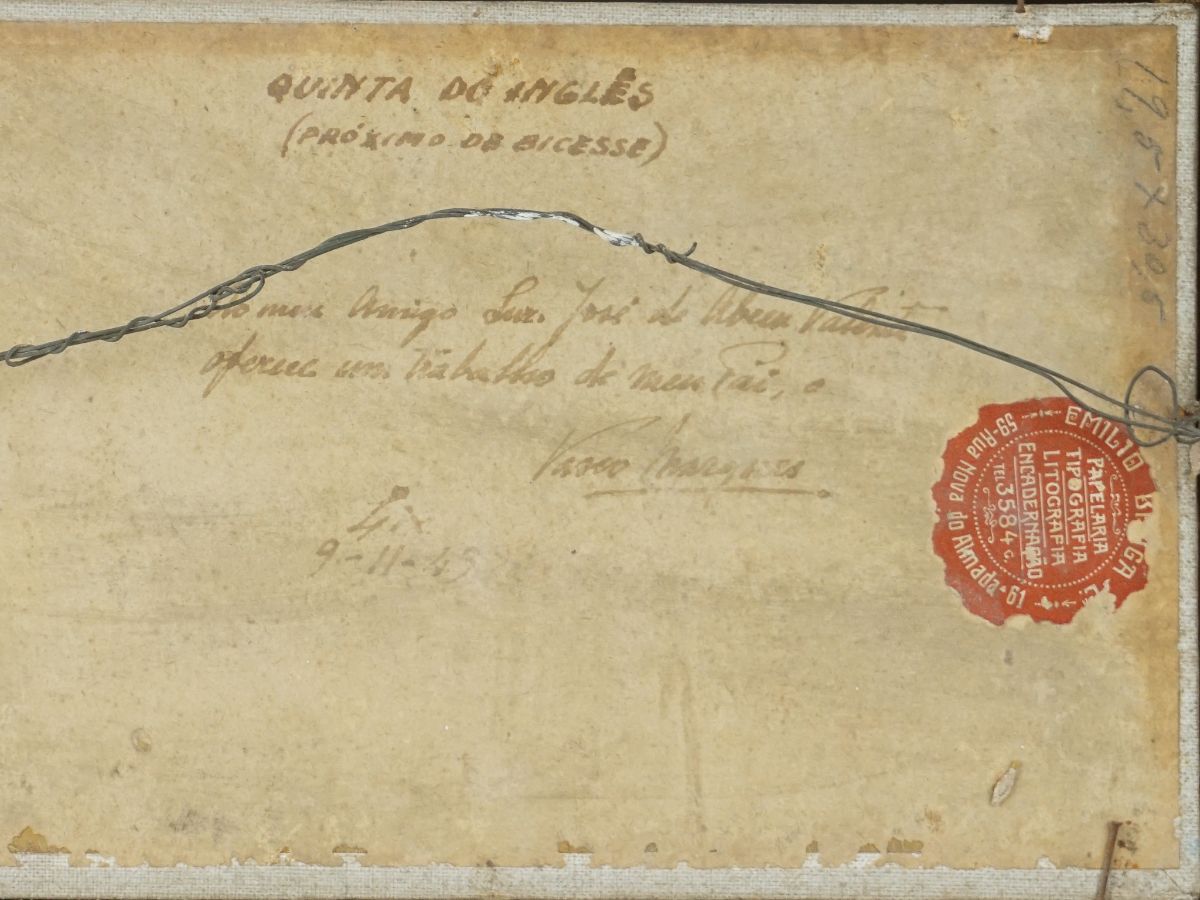 QUINTA DO INGLÊS
(PRÓXIMO DE BICESSE)
Ao meu Amigo Luz. José de Abreu
oferece um trabalho de meu Pai, o
Vasco Marques
Lix
9-11-45
19,5 X 30,5
EMILIO BRAGA
PAPELARIA
TIPOGRAFIA
LITOGRAFIA
ENCADERNAÇÃO
TEL. 3584 C.
59-Rua Nova do Almada-61